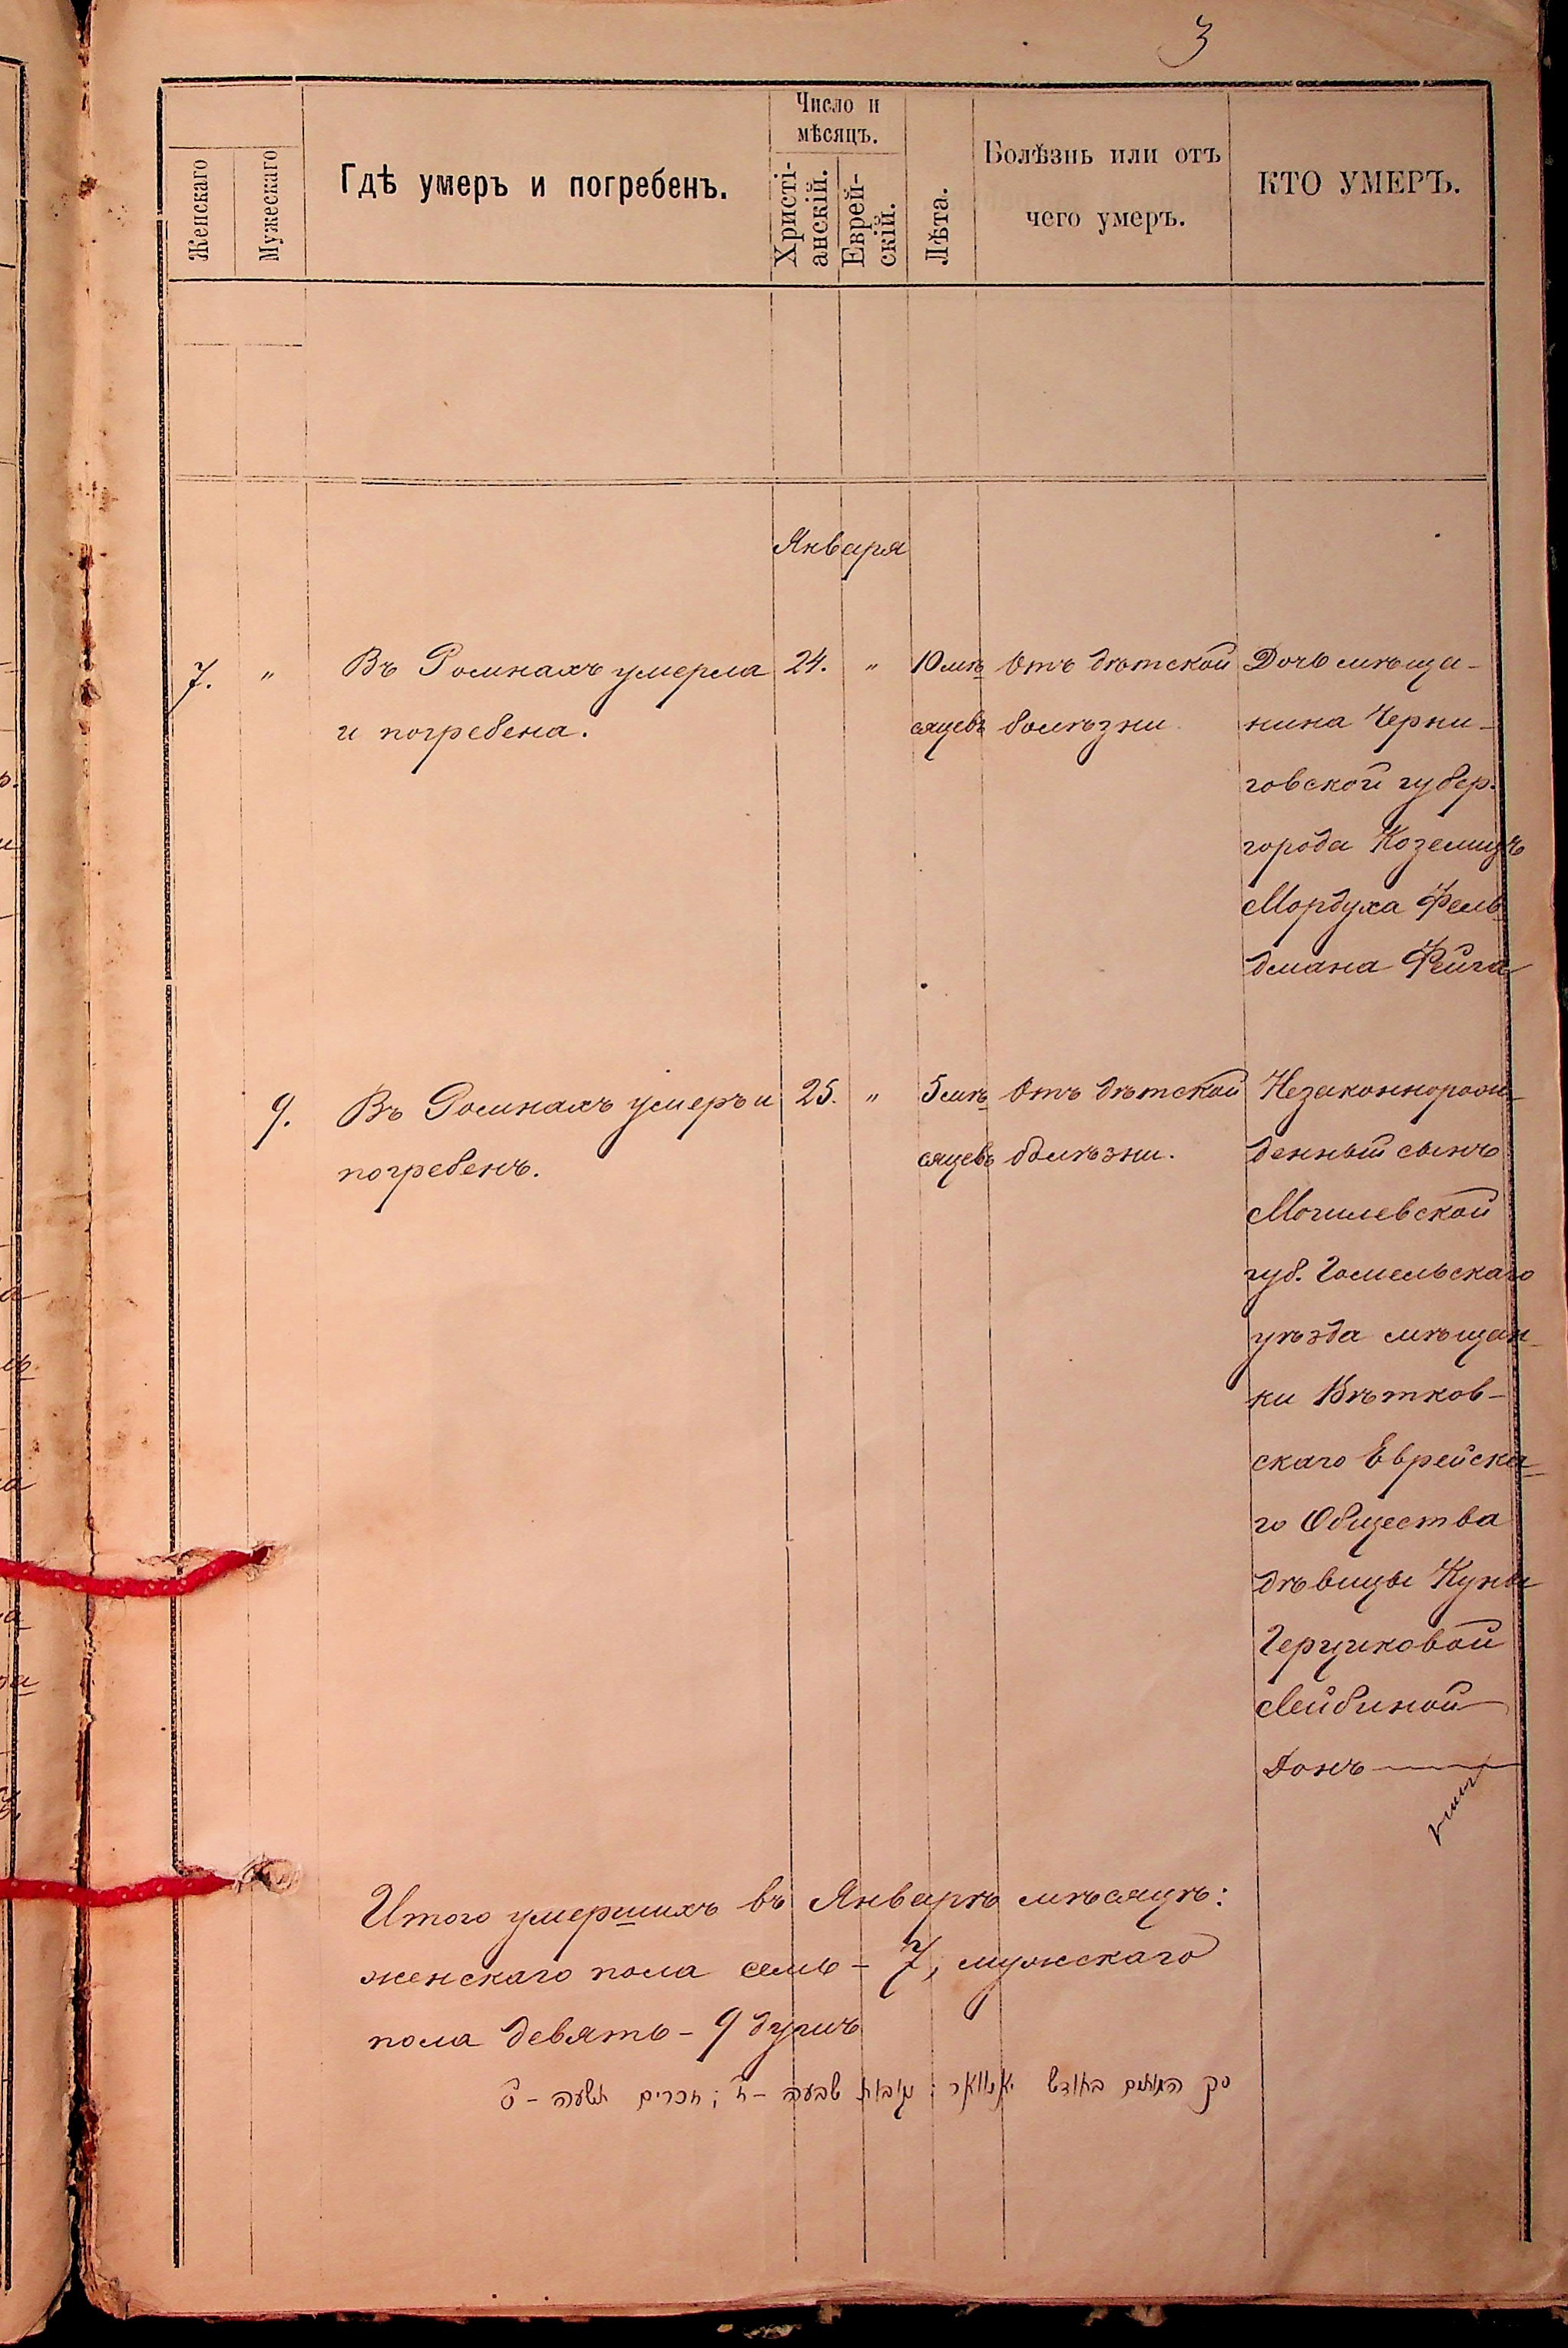 3
Женскаго
Мужескаго
Гдѣ умеръ и погребенъ.
Число и
мѣсяцъ.
Христі-
анскій.
Еврей-
скій.
Лѣта.
Болѣзнь или отъ
чего умеръ.
КТО УМЕРЪ.
Января
7. " Въ Ромнахъ умерла 24. " 10 мѣ Отъ дѣтской Дочь мѣща-
и погребена. сяцевъ болѣзни нина Черни-
говской губер.
города Козелицъ
Мордуха Фель
дмана Фейга
9. Въ Ромнахъ умеръ и 25. " 5 мѣ Отъ дѣтской Незаконнорож
погребенъ. сяцевъ болѣзни. денный сынъ
Могилевской
губ. Гомельскаго
уѣзда мѣщан
ки Вѣтков-
скаго Еврейска
го Общества
дѣвицы Куны
Герцуковой
Лейбиной
Донъ
Итого умершихъ въ Январѣ мѣсяцѣ:
женскаго пола семь - 7, мужскаго
пола девять - 9 душъ
סך המתים בחודש יאנוואר : נקבות שבעה - ז ; זכרים תשעה - ט